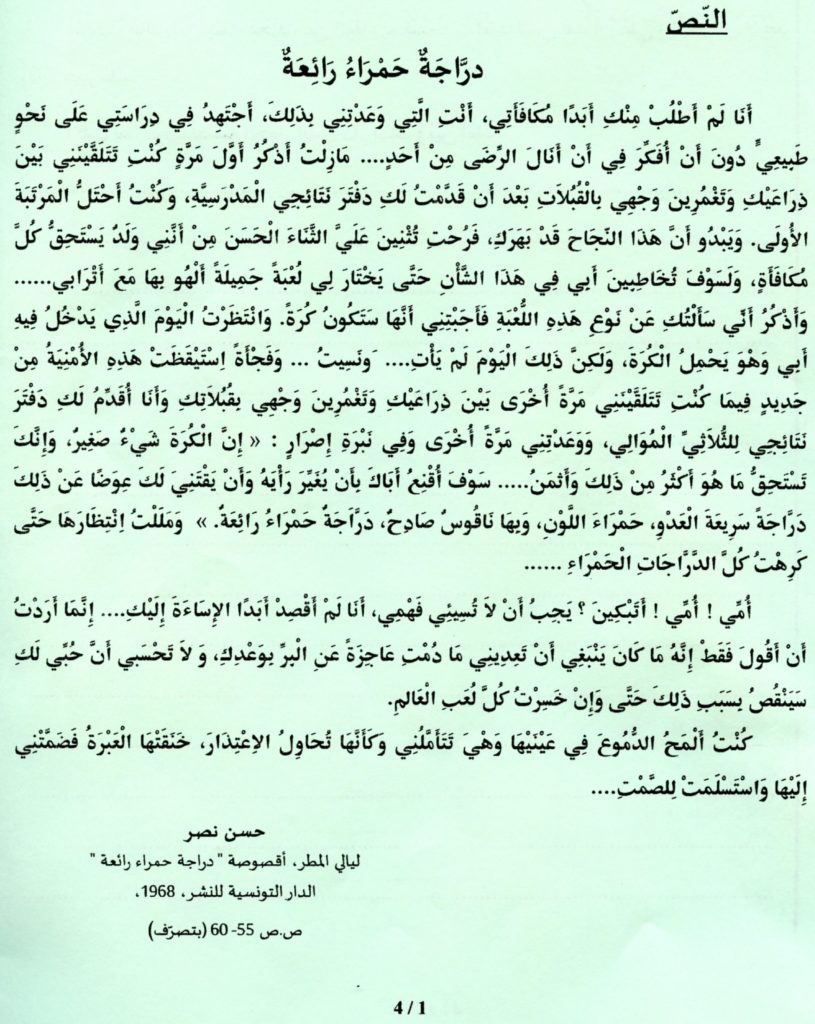 النّصّ
درَّاجَةٌ حَمْرَاءُ رَائِعَةٌ
أَنَا لَمْ أَطْلُبْ مِنْكِ أَبَدًا مُكَافَأَتِي، أَنْتِ الَّتِي وَعَدْتِنِي بِذَلِكَ، أَجْتَهِدُ فِي دِرَاسَتِي عَلَى نَحْوٍ
طَبِيعِيٍّ دُونَ أَنْ أُفَكِّرَ فِي أَنْ أَنَالَ الرِّضَى مِنْ أَحَدٍ.... مَازِلْتُ أَذْكُرُ أَوَّلَ مَرَّةٍ كُنْتِ تَتَلَقَّيْنَنِي بَيْنَ
ذِرَاعَيْكِ وَتَغْمُرِينَ وَجْهِي بِالْقُبُلَاتِ بَعْدَ أَنْ قَدَّمْتُ لَكِ دَفْتَرَ نَتَائِجِي الْمَدْرَسِيَّةِ، وَكُنْتُ أَحْتَلُّ الْمَرْتَبَةَ
الأُولَى. وَيَبْدُو أَنَّ هَذَا النَّجَاحَ قَدْ بَهَرَكِ، فَرُحْتِ تُثْنِينَ عَلَيَّ الثَّنَاءَ الْحَسَنَ مِنْ أَنَّنِي وَلَدٌ يَسْتَحِقُّ كُلَّ
مُكَافَأَةٍ، وَلَسَوْفَ تُخَاطِبِينَ أَبِي فِي هَذَا الشَّأْنِ حَتَّى يَخْتَارَ لِي لُعْبَةً جَمِيلَةً أَلْهُو بِهَا مَعَ أَتْرَابِي......
وَأَذْكُرُ أَنِّي سَأَلْتُكِ عَنْ نَوْعِ هَذِهِ اللُّعْبَةِ فَأَجَبْتِنِي أَنَّهَا سَتَكُونُ كُرَةً. وَانْتَظَرْتُ الْيَوْمَ الَّذِي يَدْخُلُ فِيهِ
أَبِي وَهْوَ يَحْمِلُ الْكُرَةَ، وَلَكِنَّ ذَلِكَ الْيَوْمَ لَمْ يَأْتِ.... وَنَسِيتُ ... وَفَجْأَةً اِسْتَيْقَظَتْ هَذِهِ الأُمْنِيَةُ مِنْ
جَدِيدٍ فِيمَا كُنْتِ تَتَلَقَّيْنَنِي مَرَّةً أُخْرَى بَيْنَ ذِرَاعَيْكِ وَتَغْمُرِينَ وَجْهِي بِقُبُلَاتِكِ وَأَنَا أُقَدِّمُ لَكِ دَفْتَرَ
نَتَائِجِي لِلثُّلَاثِيِّ الْمُوَالِي، وَوَعَدْتِنِي مَرَّةً أُخْرَى وَفِي نَبْرَةِ إِصْرَارٍ : « إِنَّ الْكُرَةَ شَيْءٌ صَغِيرٌ، وَإِنَّكَ
تَسْتَحِقُّ مَا هُوَ أَكْثَرُ مِنْ ذَلِكَ وَأَثمَنُ..... سَوْفَ أُقْنِعُ أَبَاكَ بِأَنْ يُغَيِّرَ رَأْيَهُ وَأَنْ يَقْتَنِيَ لَكَ عِوَضًا عَنْ ذَلِكَ
دَرَّاجَةً سَرِيعَةَ الْعَدْوِ، حَمْرَاءَ اللَّوْنِ، وَبِهَا نَاقُوسٌ صَادِحٌ، دَرَّاجَةٌ حَمْرَاءُ رَائِعَةٌ. » وَمَلَلْتُ اِنْتِظَارَهَا حَتَّى
كَرِهْتُ كُلَّ الدَّرَّاجَاتِ الْحَمْرَاءِ ......
أُمِّي ! أُمِّي ! أَتَبْكِينَ ؟ يَجِبُ أَنْ لاَ تُسِيئِي فَهْمِي، أَنَا لَمْ أَقْصِدْ أَبَدًا الإِسَاءَةَ إِلَيْكِ.... إِنَّمَا أَرَدْتُ
أَنْ أَقُولَ فَقَطْ إِنَّهُ مَا كَانَ يَنْبَغِي أَنْ تَعِدِينِي مَا دُمْتِ عَاجِزَةً عَنِ الْبِرِّ بِوَعْدِكِ، وَ لاَ تَحْسَبِي أَنَّ حُبِّي لَكِ
سَيَنْقُصُ بِسَبَبِ ذَلِكَ حَتَّى وَإِنْ خَسِرْتُ كُلَّ لُعَبِ الْعَالَمِ.
كُنْتُ أَلْمَحُ الدُّمُوعَ فِي عَيْنَيْهَا وَهْيَ تَتَأَمَّلُنِي وَكَأَنَّهَا تُحَاوِلُ الاِعْتِذَارَ، خَنَقَتْهَا الْعَبْرَةُ فَضَمَّتْنِي
إِلَيْهَا وَاسْتَسْلَمَتْ لِلصَّمْتِ....
حسن نصر
ليالي المطر، أقصوصة " دراجة حمراء رائعة "
الدار التونسية للنشر، 1968،
ص.ص 55- 60 (بتصرّف)
4 / 1